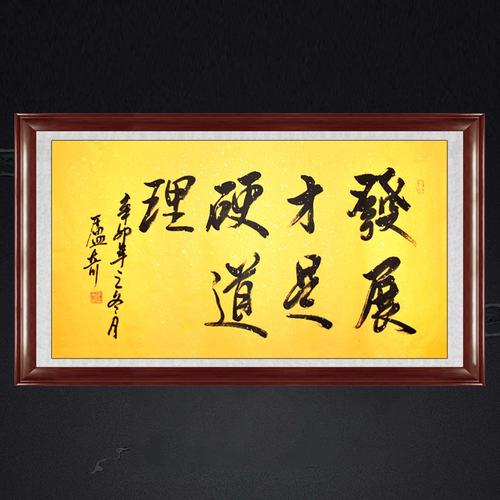 發展
才是
硬道
理
辛卯年之冬月
奇